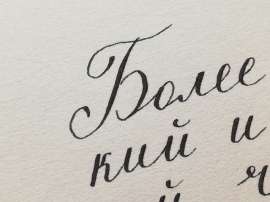 Более
кий и
й ч